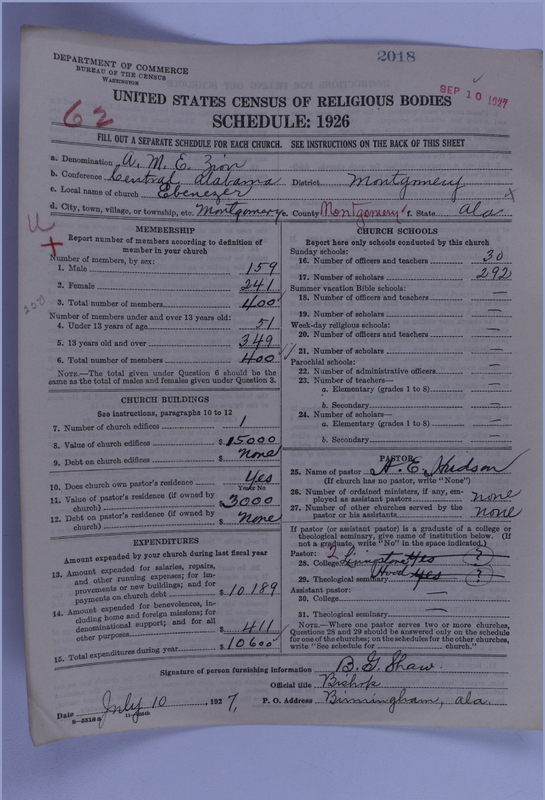 2018
DEPARTMENT OF COMMERCE
BUREAU OF THE CENSUS
WASHINGTON
SEP 10 1927
UNITED STATES CENSUS OF RELIGIOUS BODIES
62
SCHEDULE: 1926
FILL OUT A SEPARATE SCHEDULE FOR EACH CHURCH. SEE INSTRUCTIONS ON THE BACK OF THIS SHEET
a. Denomination A. M. E. Zion
b. Conference Central Alabama District Montgomery
c. Local name of church Ebenezer
d. City, town, village, or township, etc. Montgomery e. County Montgomery f. State Ala x
U
+
200
MEMBERSHIP
Report number of members according to definition of
member in your church
Number of members, by sex:
1. Male 159
2. Female 241
3. Total number of members 400
Number of members under and over 13 years old:
4. Under 13 years of age 51
5. 13 years old and over 349
6. Total number of members 400
NOTE.—The total given under Question 6 should be the
same as the total of males and females given under Question 3.
CHURCH BUILDINGS
See instructions, paragraphs 10 to 12
7. Number of church edifices 1
8. Value of church edifices $ 15000
9. Debt on church edifices $ None
10. Does church own pastor's residence Yes
Yes or No
11. Value of pastor's residence (if owned by
church) $ 3000
12. Debt on pastor's residence (if owned by
church) $ None
EXPENDITURES
Amount expended by your church during last fiscal year
13. Amount expended for salaries, repairs,
and other running expenses; for im-
provements or new buildings; and for
payments on church debt $ 10.189
14. Amount expended for benevolences, in-
cluding home and foreign missions; for
denominational support; and for all
other purposes $ 411
15. Total expenditures during year $ 10600
CHURCH SCHOOLS
Report here only schools conducted by this church
Sunday schools:
16. Number of officers and teachers 30
17. Number of scholars 292
Summer vacation Bible schools:
18. Number of officers and teachers —
19. Number of scholars —
Week-day religious schools:
20. Number of officers and teachers —
21. Number of scholars —
Parochial schools:
22. Number of administrative officers —
23. Number of teachers—
a. Elementary (grades 1 to 8) —
b. Secondary —
24. Number of scholars—
a. Elementary (grades 1 to 8) —
b. Secondary —
PASTOR
25. Name of pastor A. E. Hudson
(If church has no pastor, write "None")
26. Number of ordained ministers, if any, em-
ployed as assistant pastors none
27. Number of other churches served by the
pastor or his assistants none
If pastor (or assistant pastor) is a graduate of a college or
theological seminary, give name of institution below. (If
not a graduate, write "No" in the space indicated.)
Pastor:
28. College Livingstone Yes ?
29. Theological seminary Hood Yes ?
Assistant pastor:
30. College —
31. Theological seminary —
NOTE.—Where one pastor serves two or more churches,
Questions 28 and 29 should be answered only on the schedule
for one of the churches; on the schedules for the other churches,
write "See schedule for church."
Signature of person furnishing information B. G. Shaw.
Official title Bishop
Date July 10, 1927, P. O. Address Birmingham, Ala.